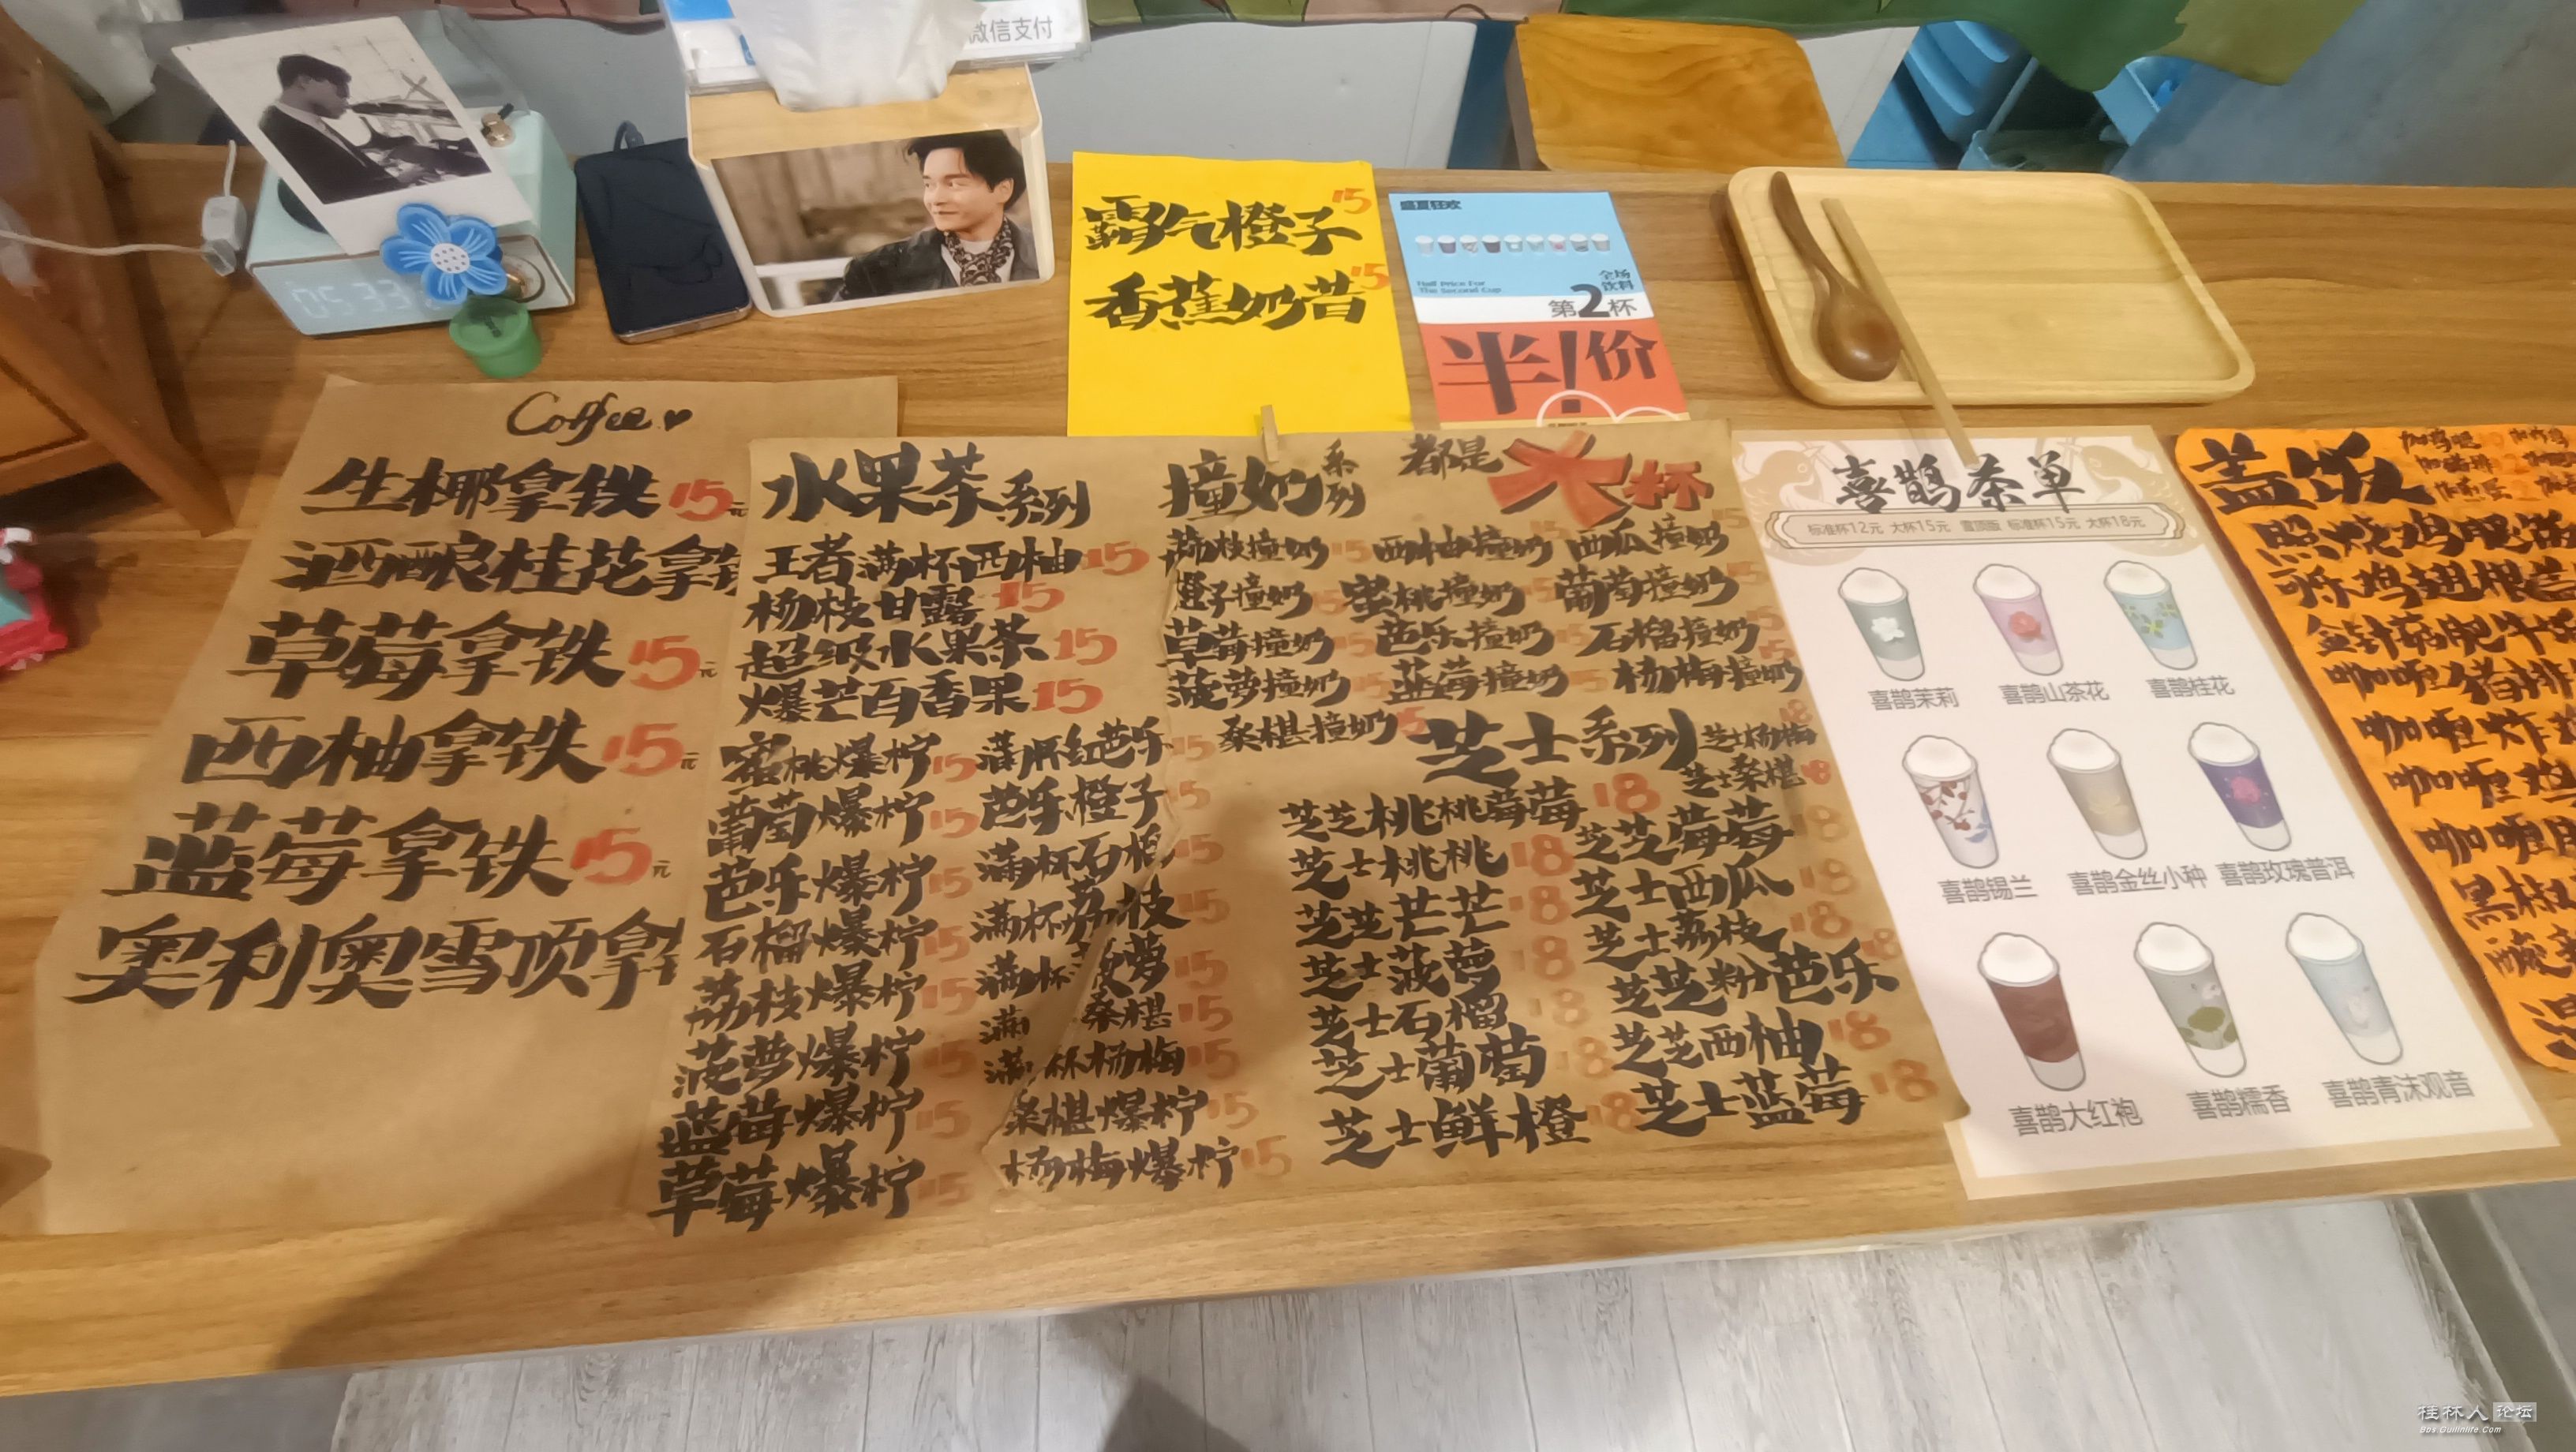 微信支付
05:33
霸气橙子 15
香蕉奶昔 15
盛夏狂欢
Half Price For
The Second Cup
全场
饮料
第2杯
半!价
Coffee
生椰拿铁 15元
酒酿桂花拿铁
草莓拿铁 15元
西柚拿铁 15元
蓝莓拿铁 15元
奥利奥雪顶拿
水果茶系列
王者满杯西柚 15
杨枝甘露 15
超级水果茶 15
爆芒百香果 15
蜜桃爆柠 15
葡萄爆柠 15
芭乐爆柠 15
石榴爆柠 15
荔枝爆柠 15
菠萝爆柠 15
蓝莓爆柠 15
草莓爆柠 15
满杯红芭乐 15
芭乐橙子 15
满杯石榴 15
满杯荔枝 15
满杯菠萝 15
满 桑椹 15
满杯杨梅 15
桑椹爆柠 15
杨梅爆柠 15
撞奶系列
都是大杯
荔枝撞奶 15 西柚撞奶 15 西瓜撞奶 15
橙子撞奶 15 蜜桃撞奶 15 葡萄撞奶 15
草莓撞奶 15 芭乐撞奶 15 石榴撞奶 15
菠萝撞奶 15 蓝莓撞奶 15 杨梅撞奶 15
桑椹撞奶 15
芝士系列
芝士杨梅 18
芝士桑椹 18
芝芝桃桃莓莓 18
芝士桃桃 18
芝芝芒芒 18
芝士菠萝 18
芝士石榴 18
芝士葡萄 18
芝士鲜橙 18
芝芝莓莓 18
芝士西瓜 18
芝士荔枝 18
芝芝粉芭乐 18
芝芝西柚 18
芝士蓝莓 18
喜鹊茶单
标准杯12元 大杯15元 雪顶版 标准杯15元 大杯18元
喜鹊茉莉 喜鹊山茶花 喜鹊桂花
喜鹊锡兰 喜鹊金丝小种 喜鹊玫瑰普洱
喜鹊大红袍 喜鹊糯香 喜鹊青沫观音
盖饭
照烧鸡腿
金针菇肥牛
咖喱猪排
咖喱炸
咖喱
咖喱
黑椒
桂林人论坛
Bbs.Guilinlife.Com